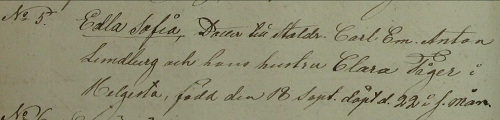 No 5. Edla Sofia, Dotter till Statdr. Carl Em. Anton
Lundburg och hans hustru Clara Tiger i
Helgesta, född den 18 Sept. döpt d. 22 i s. mån.
No